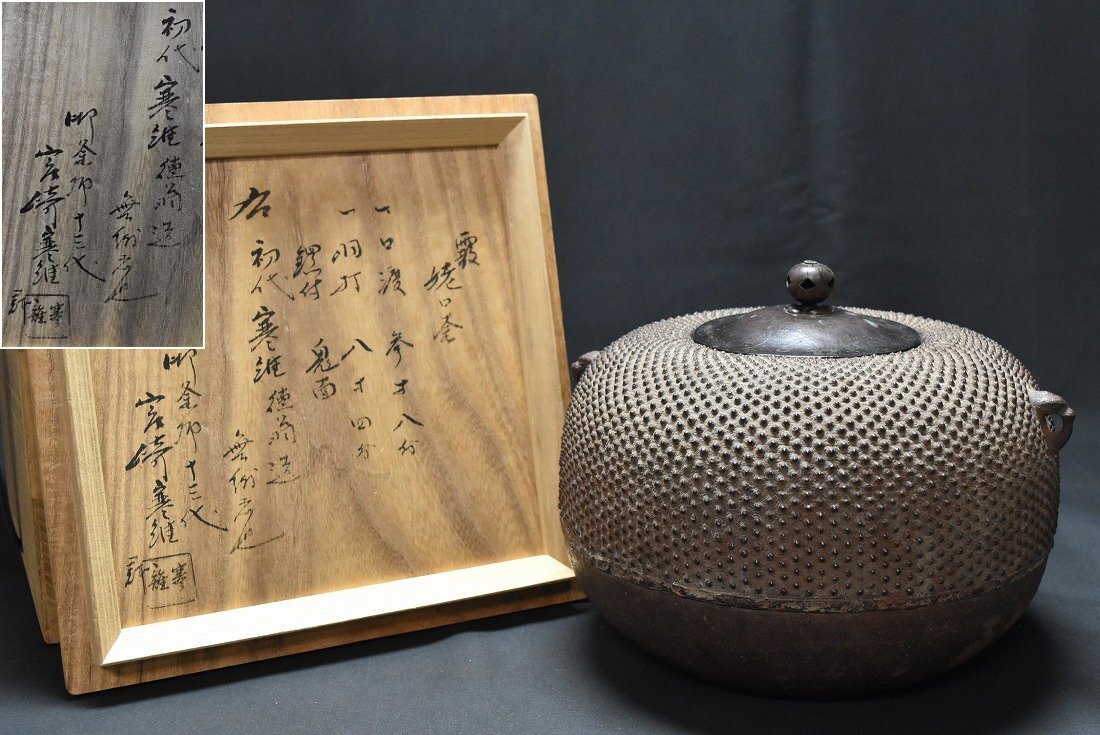 霰
姥口釜
一口渡 参寸八分
一胴打 八寸四分
鐶付 鬼面
右
初代寒雉徳翁造
無紛者也
御釜師十三代
宮崎寒雉
寒雉
初代寒雉徳翁造
無紛者也
御釜師十三代
宮崎寒雉
寒雉